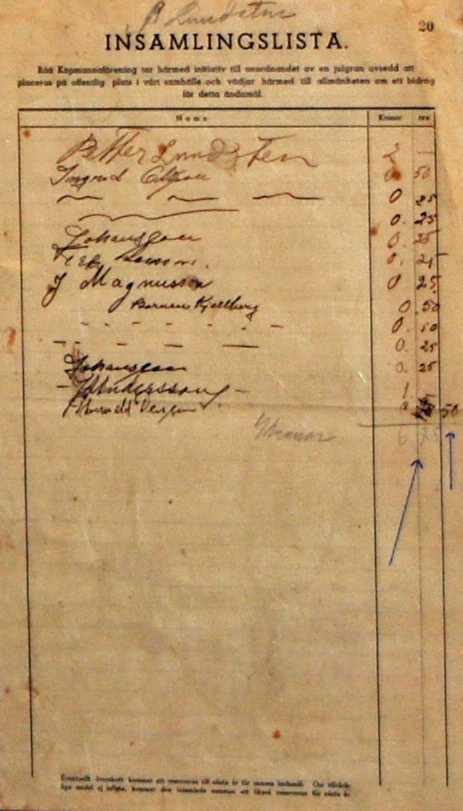 B Lundsten
20
INSAMLINGSLISTA.
Råå Köpmannaförening tar härmed initiativ till anordnandet av en julgran avsedd att
placeras på offentlig plats i vårt samhälle och vädjar härmed till allmänheten om ett bidrag
för detta ändamål.
Namn Kronor öre
Petter Lundsten 2 —
Ingrid 0 50
— — — 0 25
0. 25
Johansson 0. 25
0. 25
J Magnusson 0 25
Barnen Kjellberg 0 50
- - - - - - 0. 50
- - - - 0 25
Johansson 0. 25
- Andersson - 1
50
Kronor 6
Eventuellt överskott kommer att reserveras till nästa år för samma ändamål. Om tillräck-
liga medel ej inflyta, kommer den insamlade summan att likaså reserveras för nästa år.